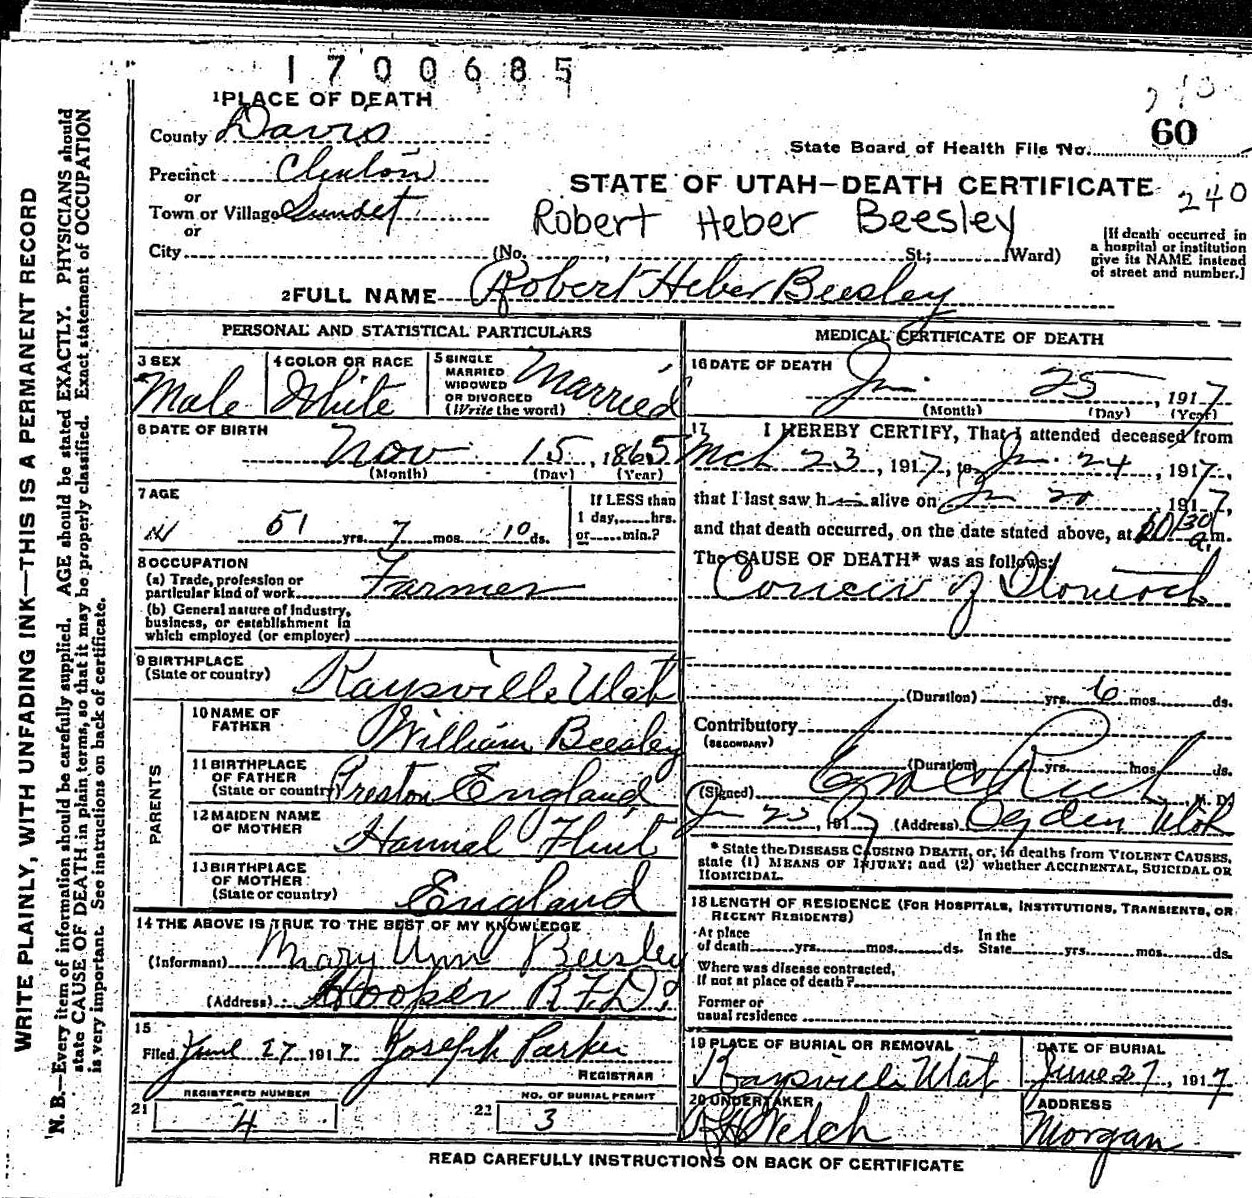 1700685
1 PLACE OF DEATH
County Davis
Precinct Clinton
or
Town or Village Sunset
or
City (No. , St.; Ward)
240
60
State Board of Health File No.
STATE OF UTAH—DEATH CERTIFICATE
240
Robert Heber Beesley
[If death occurred in
a hospital or institution
give its NAME instead
of street and number.]
2 FULL NAME Robert Heber Beesley
PERSONAL AND STATISTICAL PARTICULARS
3 SEX
Male
4 COLOR OR RACE
White
5 SINGLE
MARRIED
WIDOWED
OR DIVORCED
(Write the word)
Married
6 DATE OF BIRTH
Nov 15, 1865
(Month) (Day) (Year)
7 AGE
51 yrs. 7 mos. 10 ds.
If LESS than
1 day, hrs.
or min.?
8 OCCUPATION
(a) Trade, profession or
particular kind of work Farmer
(b) General nature of industry,
business, or establishment in
which employed (or employer)
9 BIRTHPLACE
(State or country) Kaysville Utah
PARENTS
10 NAME OF
FATHER William Beesley
11 BIRTHPLACE
OF FATHER
(State or country) Preston England
12 MAIDEN NAME
OF MOTHER Hannah Flint
13 BIRTHPLACE
OF MOTHER
(State or country) England
14 THE ABOVE IS TRUE TO THE BEST OF MY KNOWLEDGE
(Informant) Mary Ann Beesley
(Address) Hooper R.F.D.
15
Filed June 27 1917 Joseph Parker
REGISTRAR
REGISTERED NUMBER
21 4
NO. OF BURIAL PERMIT
22 3
MEDICAL CERTIFICATE OF DEATH
16 DATE OF DEATH
Jun 25, 1917
(Month) (Day) (Year)
17 I HEREBY CERTIFY, That I attended deceased from
Mch 23, 1917, to Jun. 24, 1917,
that I last saw h alive on Jun 20, 1917,
and that death occurred, on the date stated above, at 10 30 a.m.
The CAUSE OF DEATH* was as follows:
Cancer of Stomach
(Duration) yrs. 6 mos. ds.
Contributory
(SECONDARY)
(Duration) yrs. mos. ds.
(Signed) Rich, M. D.
Jun 25, 1917 (Address) Ogden Utah
* State the DISEASE CAUSING DEATH, or, in deaths from VIOLENT CAUSES,
state (1) MEANS OF INJURY; and (2) whether ACCIDENTAL, SUICIDAL OR
HOMICIDAL.
18 LENGTH OF RESIDENCE (FOR HOSPITALS, INSTITUTIONS, TRANSIENTS, OR
RECENT RESIDENTS)
At place
of death yrs. mos. ds.
In the
State yrs. mos. ds.
Where was disease contracted,
If not at place of death?
Former or
usual residence
19 PLACE OF BURIAL OR REMOVAL
Kaysville Utah
DATE OF BURIAL
June 27, 1917
20 UNDERTAKER
Welch
ADDRESS
Morgan
READ CAREFULLY INSTRUCTIONS ON BACK OF CERTIFICATE
WRITE PLAINLY, WITH UNFADING INK—THIS IS A PERMANENT RECORD
N. B.—Every item of information should be carefully supplied. AGE should be stated EXACTLY. PHYSICIANS should
state CAUSE OF DEATH in plain terms, so that it may be properly classified. Exact statement of OCCUPATION
is very important. See instructions on back of certificate.